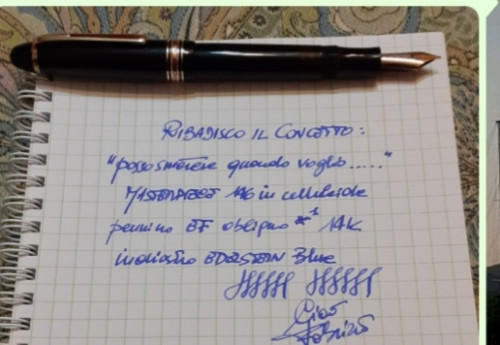 RIBADISCO IL CONCETTO:
"posso smettere quando voglio....."
MASTERPIECE 146 in celluloide
pennino EF obliquo 14K
inchiostro EDELSTEIN Blue
Ciao
Fabrizio